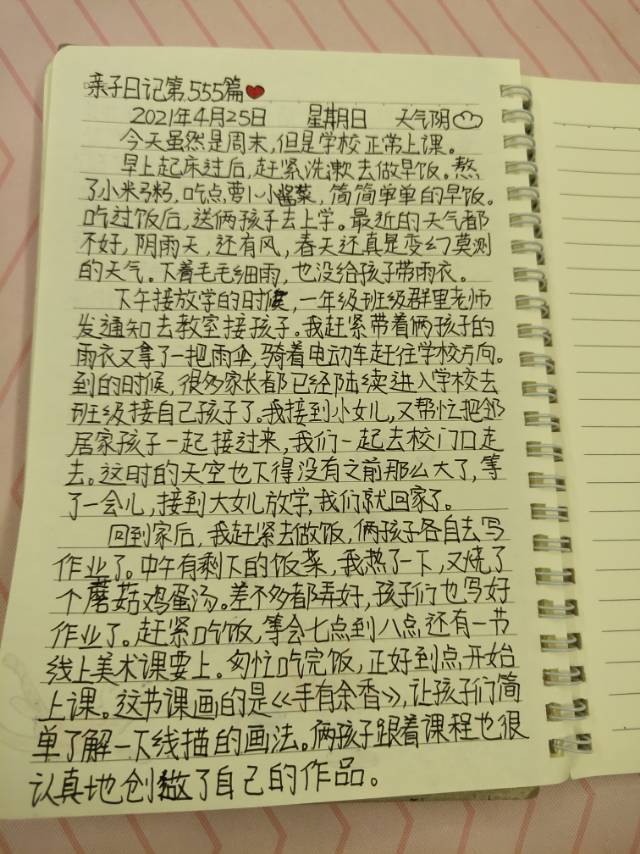 亲子日记第555篇
2021年4月25日 星期日 天气阴
今天虽然是周末,但是学校正常上课。
早上起床过后,赶紧洗漱去做早饭。熬
了小米粥,吃点萝卜小酱菜,简简单单的早饭。
吃过饭后,送俩孩子去上学。最近的天气都
不好,阴雨天,还有风,春天还真是变幻莫测
的天气。下着毛毛细雨,也没给孩子带雨衣。
下午接放学的时候,一年级班级群里老师
发通知去教室接孩子。我赶紧带着俩孩子的
雨衣又拿了一把雨伞,骑着电动车赶往学校方向。
到的时候,很多家长都已经陆续进入学校去
班级接自己孩子了。我接到小女儿,又帮忙把邻
居家孩子一起接过来,我们一起去校门口走
去。这时的天空也下得没有之前那么大了,等
了一会儿,接到大女儿放学,我们就回家了。
回到家后,我赶紧去做饭,俩孩子各自去写
作业了。中午有剩下的饭菜,我热了一下,又烧了
个蘑菇鸡蛋汤。差不多都弄好,孩子们也写好
作业了。赶紧吃饭,等会七点到八点还有一节
线上美术课要上。匆忙吃完饭,正好到点开始
上课。这节课画的是《手有余香》,让孩子们简
单了解一下线描的画法。俩孩子跟着课程也很
认真地创做了自己的作品。